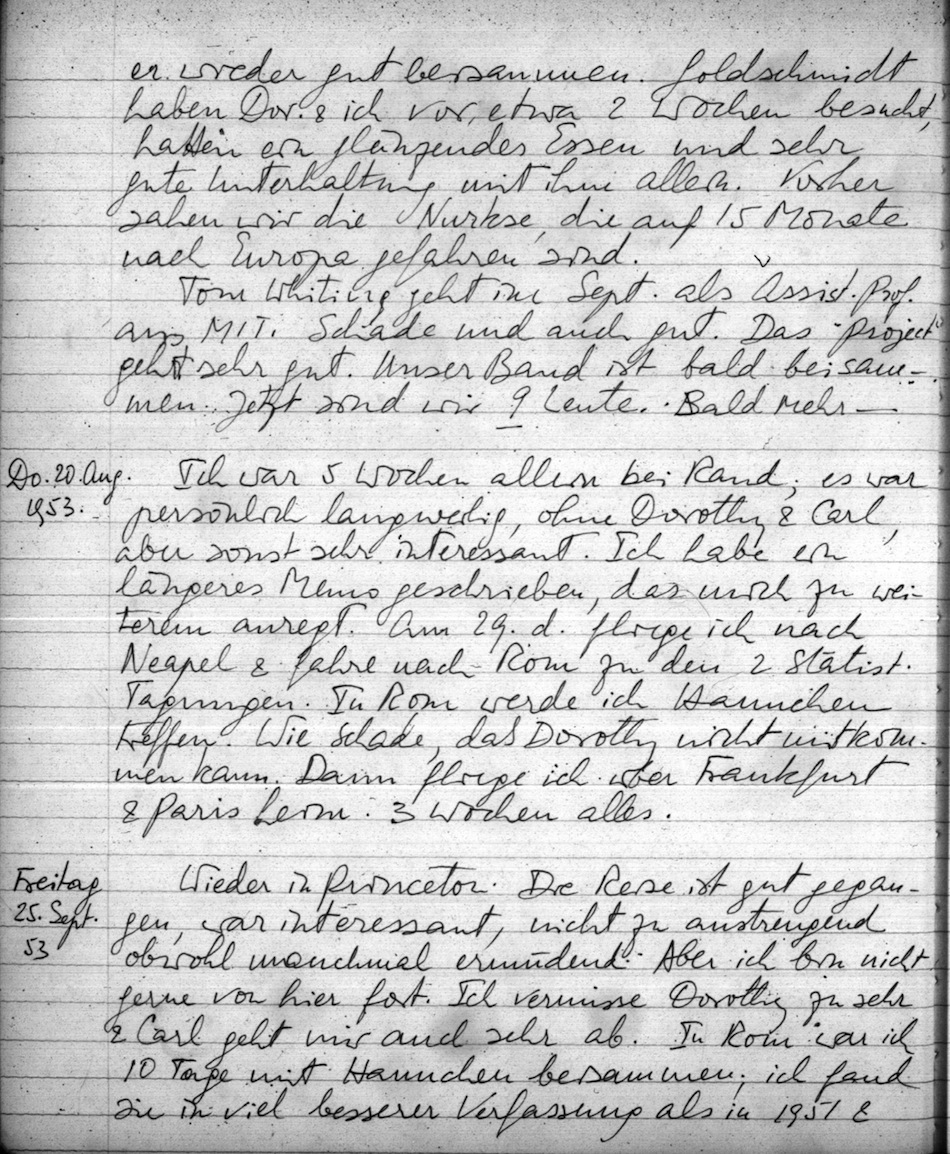 er wieder gut beisammen. Goldschmidt
haben Dor. & ich vor etwa 2 Wochen besucht,
hatten ein glänzendes Essen und sehr
gute Unterhaltung mit ihm allein. Vorher
sahen wir die Nurkse, die auf 15 Monate
nach Europa gefahren sind.
Tom Whiting geht im Sept. als Assist. Prof.
ans MIT. Schade und auch gut. Das "project"
geht sehr gut. Unser Band ist bald beisam-
men. Jetzt sind wir 9 Leute. Bald mehr —
Do. 20. Aug.
1953.
Ich war 5 Wochen allein bei Rand; es war
persönlich langweilig, ohne Dorothy & Carl,
aber sonst sehr interessant. Ich habe ein
längeres Memo geschrieben, das mich zu wei-
terem anregt. Am 29. d. fliege ich nach
Neapel & fahre nach Rom zu den 2 Statist.
Tagungen. In Rom werde ich Hannchen
treffen. Wie schade, daß Dorothy nicht mitkom-
men kann. Dann fliege ich über Frankfurt
& Paris heim. 3 Wochen alles.
Freitag
25. Sept.
53
Wieder in Princeton. Die Reise ist gut gegan-
gen, war interessant, nicht zu anstrengend
obwohl manchmal ermüdend. Aber ich bin nicht
gerne von hier fort. Ich vermisse Dorothy zu sehr
& Carl geht mir auch sehr ab. In Rom war ich
10 Tage mit Hannchen beisammen; ich fand
sie in viel besserer Verfassung als in 1951 &